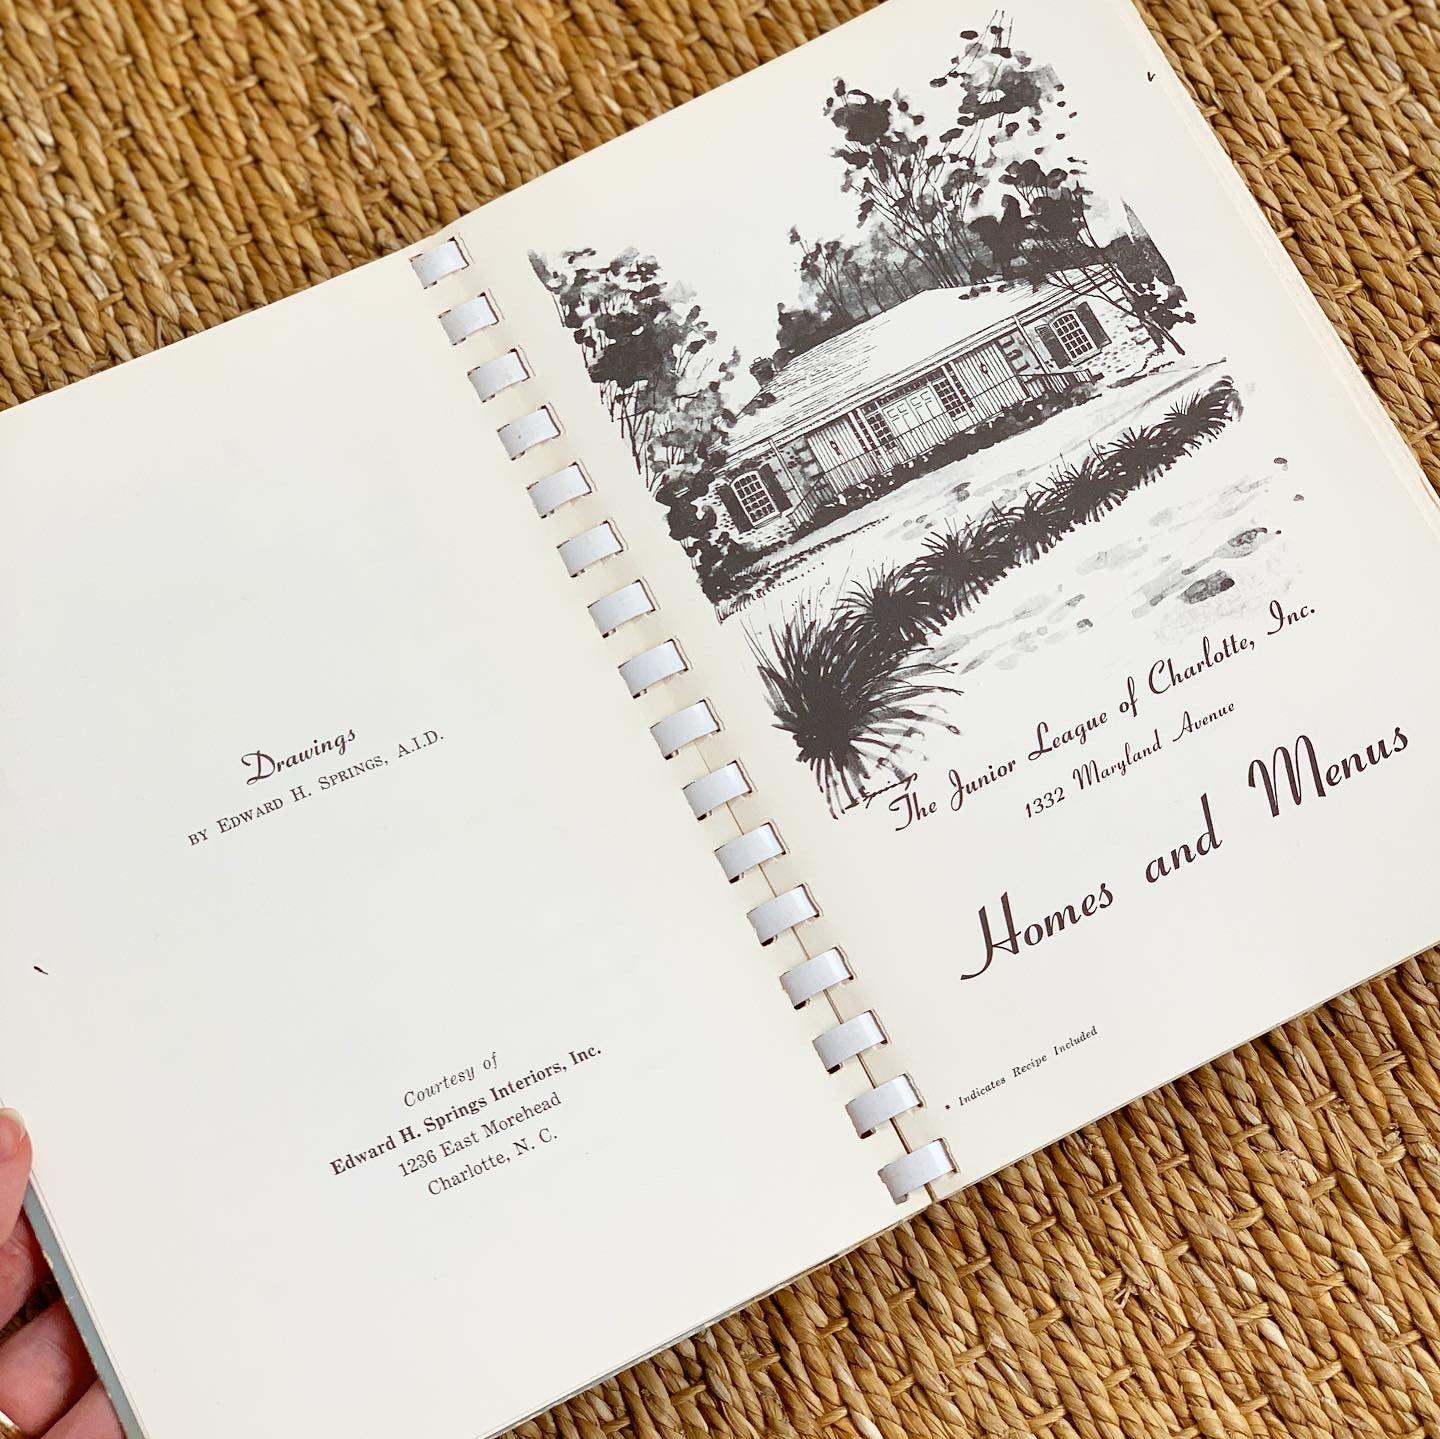 Drawings
BY EDWARD H. SPRINGS, A.I.D.
Courtesy of
Edward H. Springs Interiors, Inc.
1236 East Morehead
Charlotte, N. C.
Springs
The Junior League of Charlotte, Inc.
1332 Maryland Avenue
Homes and Menus
* Indicates Recipe Included